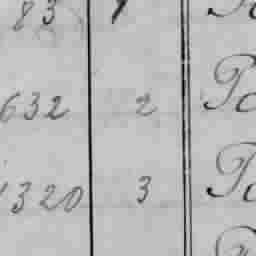 83 1
632 2 Po
1320 3 Po